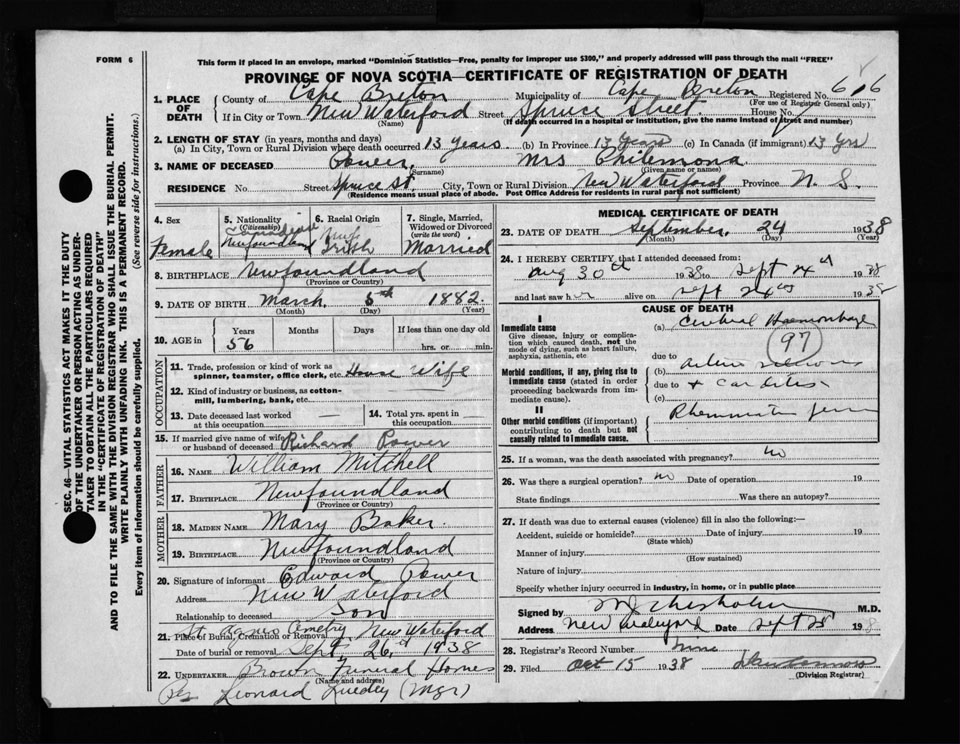 FORM 6
This form if placed in an envelope, marked "Dominion Statistics—Free, penalty for improper use $300," and properly addressed will pass through the mail "FREE"
PROVINCE OF NOVA SCOTIA—CERTIFICATE OF REGISTRATION OF DEATH
SEC. 46—VITAL STATISTICS ACT MAKES IT THE DUTY
OF THE UNDERTAKER OR PERSON ACTING AS UNDER-
TAKER TO OBTAIN ALL THE PARTICULARS REQUIRED
IN THE "CERTIFICATE OF REGISTRATION OF DEATH"
AND TO FILE THE SAME WITH THE DIVISION REGISTRAR WHO SHALL ISSUE THE BURIAL PERMIT.
WRITE PLAINLY WITH UNFADING INK. THIS IS A PERMANENT RECORD.
Every item of information should be carefully supplied. (See reverse side for instructions.)
1. PLACE OF DEATH
County of Cape Breton Municipality of Cape Breton Registered No. 616
(For use of Registrar General only)
If in City or Town New Waterford Street Spruce Street House No.
(Name) (If death occurred in a hospital or institution, give the name instead of street and number)
2. LENGTH OF STAY (in years, months and days)
(a) In City, Town or Rural Division where death occurred 13 years. (b) In Province 13 Years (c) In Canada (if immigrant) 13 yrs
3. NAME OF DECEASED Power, Mrs Philemona
(Surname) (Given name or names)
RESIDENCE No. Street Spruce St. City, Town or Rural Division New Waterford Province N. S.
(Residence means usual place of abode. Post Office Address for residents in rural parts not sufficient)
4. Sex Female
5. Nationality (Citizenship) Newfoundland
6. Racial Origin Irish
7. Single, Married, Widowed or Divorced (write the word) Married
8. BIRTHPLACE Newfoundland
(Province or Country)
9. DATE OF BIRTH March 5th 1882.
(Month) (Day) (Year)
10. AGE in Years 56 Months Days If less than one day old
hrs. or min.
OCCUPATION
11. Trade, profession or kind of work as spinner, teamster, office clerk, etc. House Wife
12. Kind of industry or business, as cotton-mill, lumbering, bank, etc.
13. Date deceased last worked at this occupation —
14. Total yrs. spent in this occupation —
15. If married give name of wife or husband of deceased Richard Power
FATHER
16. NAME William Mitchell
17. BIRTHPLACE Newfoundland
(Province or Country)
MOTHER
18. MAIDEN NAME Mary Baker.
19. BIRTHPLACE Newfoundland
(Province or Country)
20. Signature of informant Edward Power
Address New Waterford
Relationship to deceased Son
21. Place of Burial, Cremation or Removal St Agnes Cemetry New Waterford
Date of burial or removal Sept 26th 1938
22. UNDERTAKER Brown Funeral Homes
(Name and address)
Leonard (Mgr)
MEDICAL CERTIFICATE OF DEATH
23. DATE OF DEATH September, 24 1938
(Month) (Day) (Year)
24. I HEREBY CERTIFY that I attended deceased from:
Aug 30th 1938 to Sept 24th 1938
and last saw her alive on Sept 24th 1938
CAUSE OF DEATH
I
Immediate cause
Give disease, injury or complication which caused death, not the mode of dying, such as heart failure, asphyxia, asthenia, etc
(a) Cerebral Haemorrhage
97
due to
Morbid conditions, if any, giving rise to immediate cause (stated in order proceeding backwards from immediate cause).
(b)
due to + Carditis
(c)
II
Other morbid conditions (if important) contributing to death but not causally related to immediate cause.
25. If a woman, was the death associated with pregnancy? no
26. Was there a surgical operation? no Date of operation 19
State findings Was there an autopsy?
27. If death was due to external causes (violence) fill in also the following:—
Accident, suicide or homicide? Date of injury 19
(State which)
Manner of injury
(How sustained)
Nature of injury
Specify whether injury occurred in industry, in home, or in public place
Signed by M.D.
Address Date Sept 25 1938
28. Registrar's Record Number Nine
29. Filed Oct 15 1938
(Division Registrar)